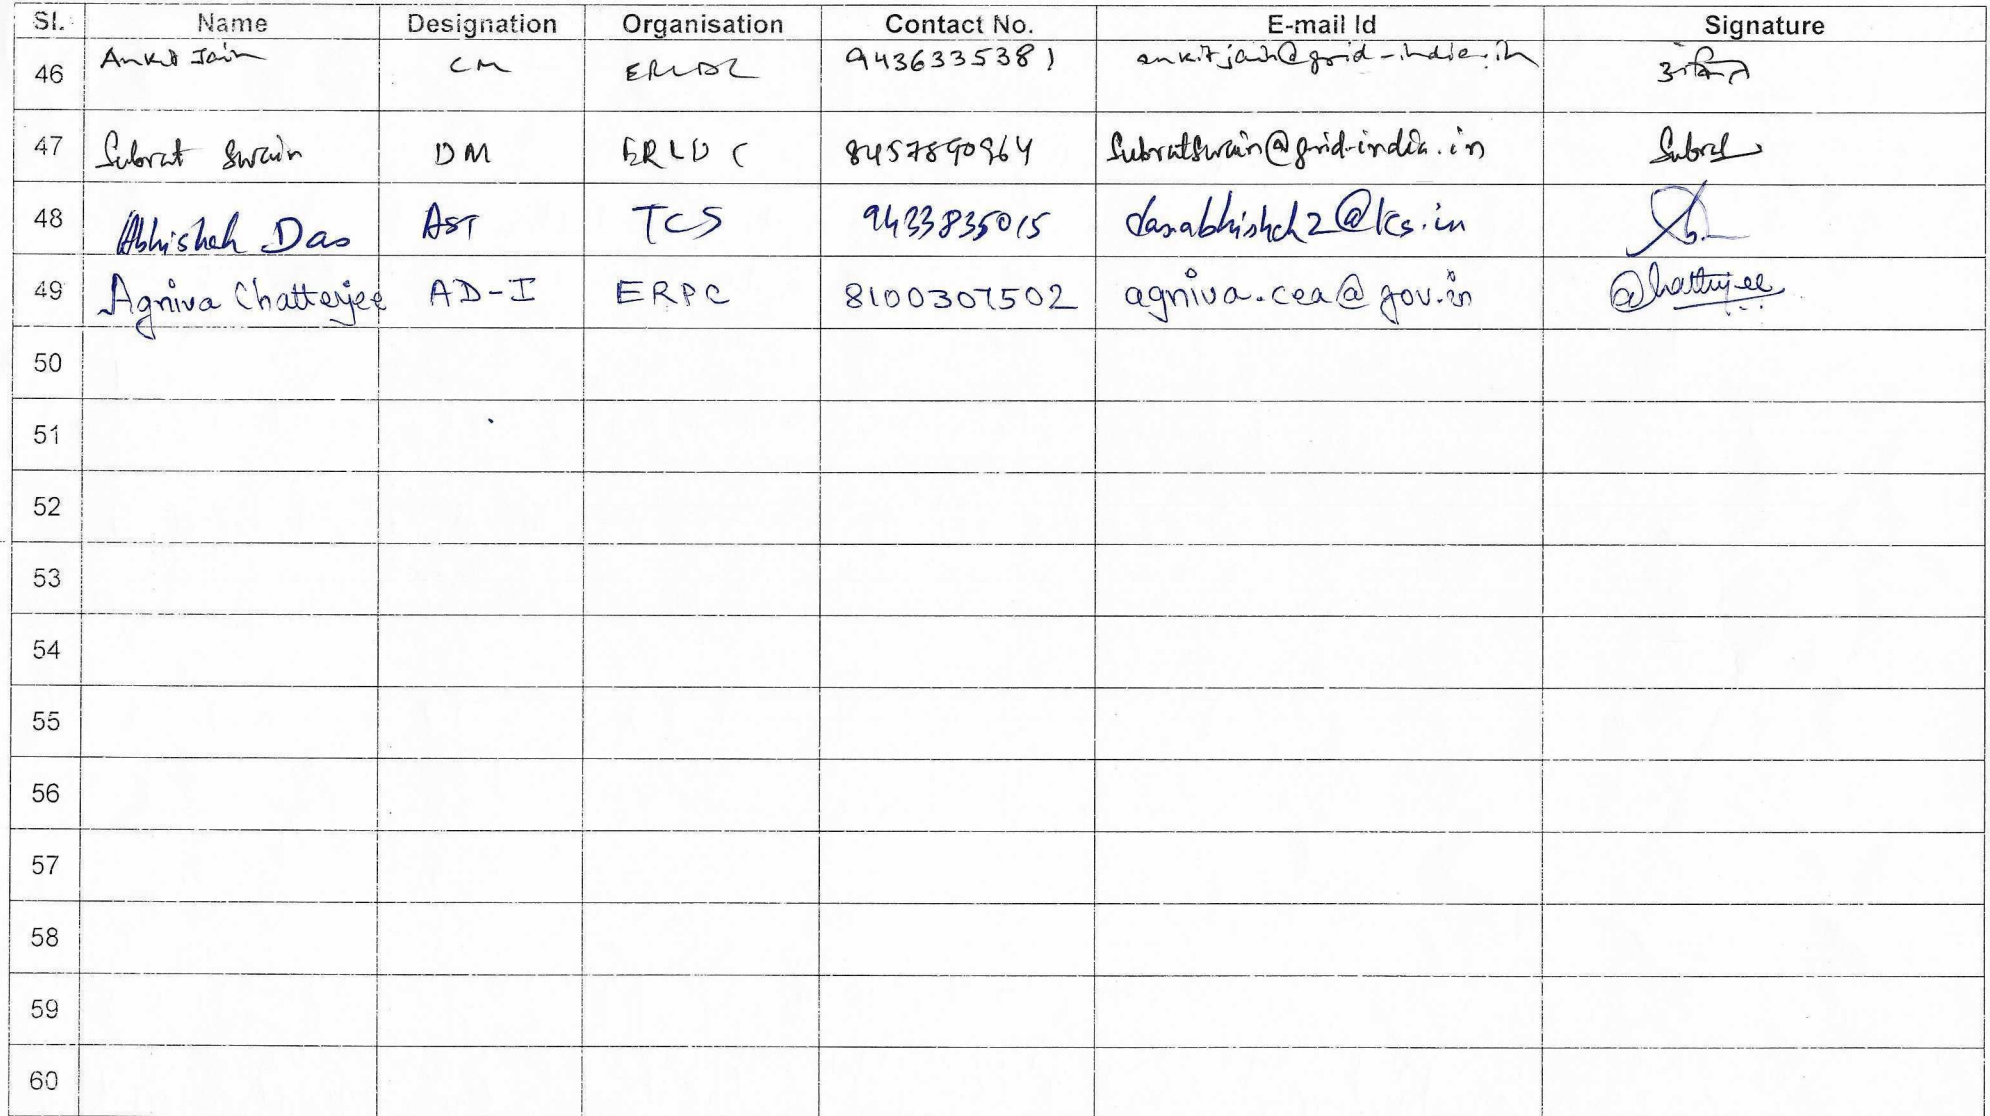 Sl. Name Designation Organisation Contact No. E-mail Id Signature
46 Ankit Jain CM ERLDC 9436335381 ankitjain@grid-india.in अंकित
47 Subrat Swain DM ERLDC 8457890964 Subratswain@grid-india.in Subrat
48 Abhishek Das AST TCS 9433835015 dasabhishek2@tcs.in
49 Agniva Chatterjee AD-I ERPC 8100307502 agniva.cea@gov.in Chatterjee
50
51
52
53
54
55
56
57
58
59
60